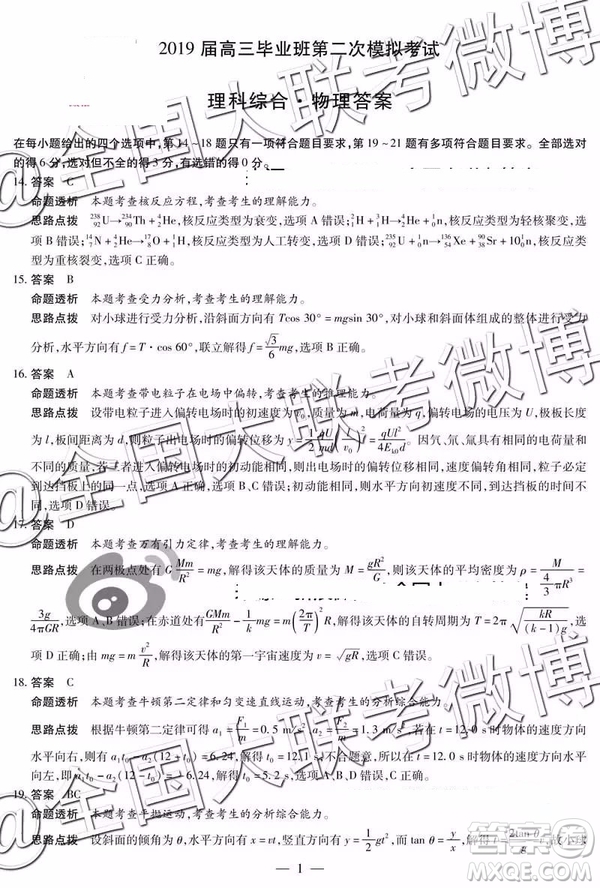 2019 届高三毕业班第二次模拟考试
理科综合·物理答案
在每小题给出的四个选项中,第 14～18 题只有一项符合题目要求,第 19～21 题有多项符合题目要求。全部选对
的得 6 分,选对但不全的得 3 分,有选错的得 0 分。
14. 答案 C
命题透析 本题考查核反应方程,考查考生的理解能力。
思路点拨 ²³⁸₉₂U→²³⁴₉₀Th + ⁴₂He,核反应类型为衰变,选项 A 错误;²₁H + ³₁H→⁴₂He + ¹₀n,核反应类型为轻核聚变,选
项 B 错误;¹⁴₇N + ⁴₂He→¹⁷₈O + ¹₁H,核反应类型为人工转变,选项 D 错误;²³⁵₉₂U + ¹₀n→¹⁴⁰₅₄Xe + ⁹⁴₃₈Sr + 2¹₀n,核反应类
型为重核裂变,选项 C 正确。
15. 答案 B
命题透析 本题考查受力分析,考查考生的理解能力。
思路点拨 对小球进行受力分析,沿斜面方向有 Tcos 30° = mgsin 30°,对小球和斜面体组成的整体进行受力
分析,水平方向有 f = T·cos 60°,联立解得 f = √3/6 mg,选项 B 正确。
16. 答案 A
命题透析 本题考查带电粒子在电场中偏转,考查考生的推理能力。
思路点拨 设带电粒子进入偏转电场时的初速度为 v₀,质量为 m,电荷量为 q,偏转电场的电压为 U,极板长为
l,板间距离为 d,则粒子出电场时的偏转位移为 y = 1/2 qU/md (l/v₀)² = qUl²/4E_{k0}d。因氕、氘、氚具有相同的电荷量和
不同的质量,若三者进入偏转电场时的初动能相同,则出电场时的偏转位移相同,速度偏转角相同,粒子必定
到达挡板的同一位置,选项 A 正确,选项 B、C 错误。初动能相同,则水平方向初速度不相同,到达挡板的时间
不同,选项 D 错误。
17. 答案 D
命题透析 本题考查万有引力定律,考查考生的理解能力。
思路点拨 在两极点处有 G Mm/R² = mg,解得该天体的质量为 M = gR²/G,该天体的平均密度为 ρ = M/(4/3 πR³) =
3g/4πGR,选项 A、B 错误;在赤道处有 GMm/R² − 1/k mg = m(2π/T)²R,解得该天体的自转周期为 T = 2π√(kR/(k−1)g),
选项 D 正确;由 mg = m v²/R,解得该天体的第一宇宙速度为 v = √gR,选项 C 错误。
18. 答案 C
命题透析 本题考查牛顿第二定律和匀变速直线运动,考查考生的分析综合能力。
思路点拨 根据牛顿第二定律可得 a₁ = F₁/m = 0.5 m/s²,a₂ = F₂/m = 1.3 m/s²,若在 t = 12.0 s 时物体的速度方向
水平向右,则有 a₁t₀ − a₂(12 − t₀) = 6.24,解得 t₀ > 12.0 s,不合题意,所以在 t = 12.0 s 时物体的速度方向水
平向左,则有 a₁t₀ − a₂(12 − t₀) = −6.24,解得 t₀ = 5.2 s,选项 C 正确。
19. 答案 BC
命题透析 本题考查平抛运动,考查考生的分析综合能力。
思路点拨 设斜面的倾角为 θ,则水平方向有 x = vt,竖直方向有 y = 1/2 gt²,而 tan θ = y/x,解得
— 1 —
@全国大联考微博
@全国大联考微博
@全国大联考微博
答案圈
MXQE.COM